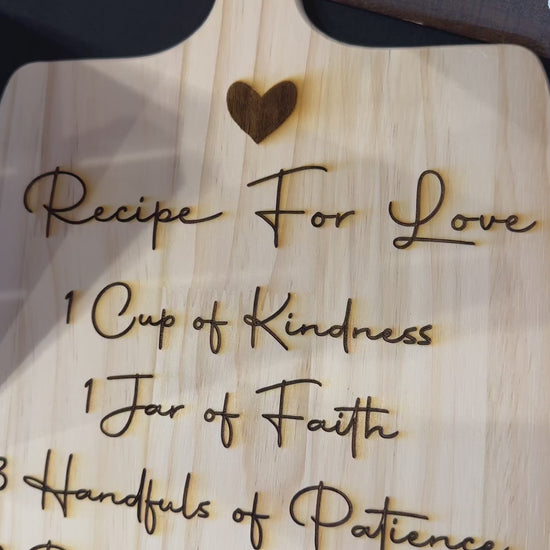 Recipe For Love
1 Cup of Kindness
1 Jar of Faith
3 Handfuls of Patience